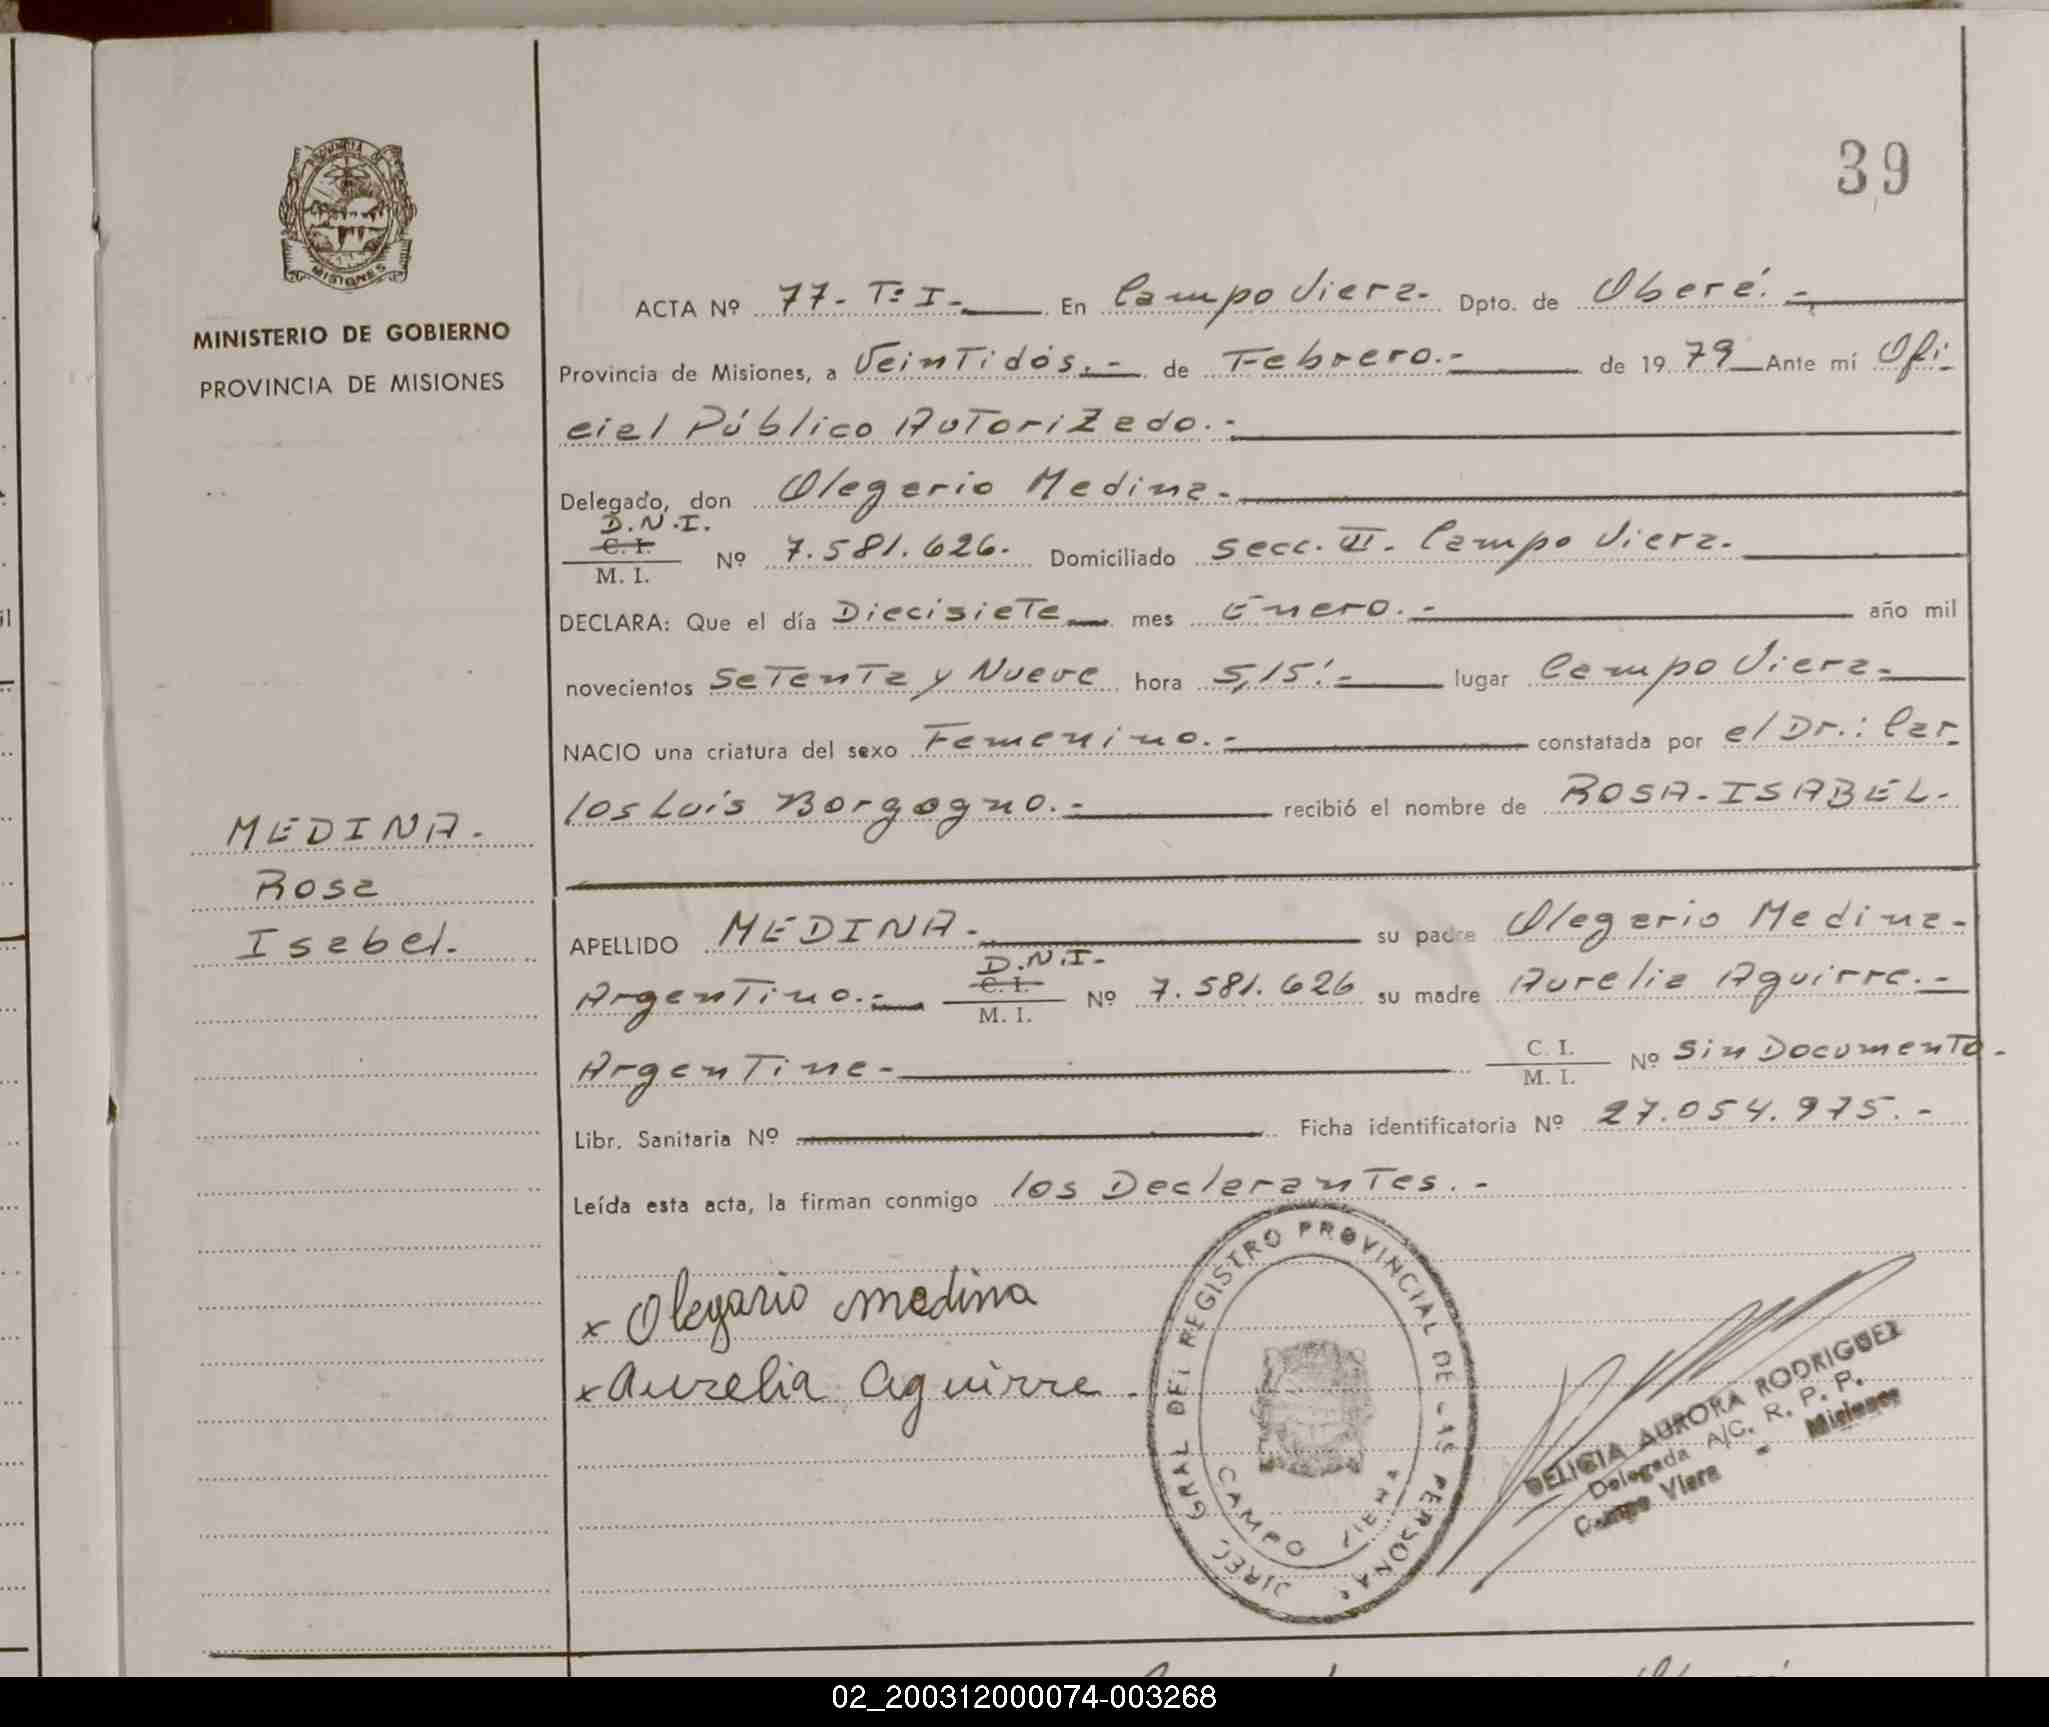 39
MINISTERIO DE GOBIERNO
PROVINCIA DE MISIONES
MEDINA.
Rosa
Isabel.
ACTA Nº 77- Tº I- En Campo Viera- Dpto. de Oberá.-
Provincia de Misiones, a VeinTidós.- de Febrero.- de 1979 Ante mí Ofi-
cial Público AuTorizado.-
Delegado, don Olegario Medina-
D.N.I.
C. I.
M. I. Nº 7.581.626. Domiciliado secc. VI. Campo Viera-
DECLARA: Que el día DiecisieTe mes Enero.- año mil
novecientos SeTenTa y Nueve hora 5,15'.- lugar Campo Viera-
NACIO una criatura del sexo Femenino.- constatada por el Dr.: Car-
los Luis Borgogno.- recibió el nombre de ROSA-ISABEL-
APELLIDO MEDINA- su padre Olegario Medina-
D.N.I-
ArgenTino.- C. I. M. I. Nº 7.581.626 su madre Aurelia Aguirre.-
ArgenTina- C. I. M. I. Nº Sin DocumenTo-
Libr. Sanitaria Nº Ficha identificatoria Nº 27.054.975.-
Leída esta acta, la firman conmigo los DeclaranTes.-
x Olegario medina
x Aurelia Aguirre.
DIREC GRAL DEL REGISTRO PROVINCIAL DE LAS PERSONAS
CAMPO VIERA
DELICIA AURORA RODRIGUEZ
Delegada A/C. R. P. P.
Campo Viera - Misiones
PROVINCIA DE
MISIONES
02_200312000074-003268